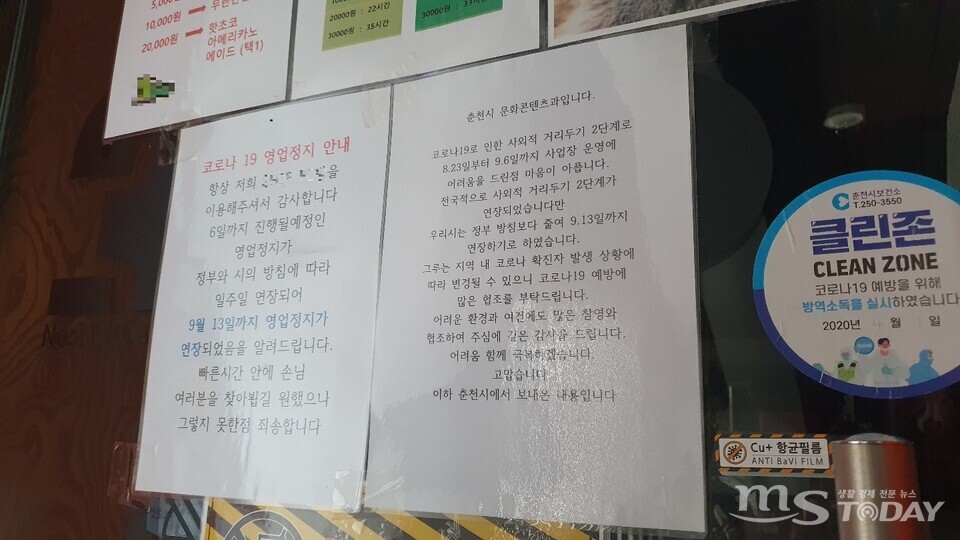 5,000원
10,000원
20,000원
핫초코
아메리카노
에이드 (택1)
20000원 : 22시간
30000원 : 35시간
30000원 : 33시간
코로나 19 영업정지 안내
항상 저희 을
이용해주셔서 감사합니다
6일까지 진행될예정인
영업정지가
정부와 시의 방침에 따라
일주일 연장되어
9월 13일까지 영업정지가
연장되었음을 알려드립니다.
빠른시간 안에 손님
여러분을 찾아뵙길 원했으나
그렇지 못한점 죄송합니다
춘천시 문화콘텐츠과입니다.
코로나19로 인한 사회적 거리두기 2단계로
8.23일부터 9.6일까지 사업장 운영에
어려움을 드린점 마음이 아픕니다.
전국적으로 사회적 거리두기 2단계가
연장되었습니다만
우리시는 정부 방침보다 줄여 9.13일까지
연장하기로 하였습니다.
그루는 지역 내 코로나 확진자 발생 상황에
따라 변경될 수 있으니 코로나19 예방에
많은 협조를 부탁드립니다.
어려운 환경과 여건에도 많은 참영와
협조하여 주심에 깊은 감사를 드립니다.
어려움 함께 극복하겠습니다.
고맙습니다
이하 춘천시에서 보내온 내용입니다
춘천시보건소
T.250-3550
클린존
CLEAN ZONE
코로나19 예방을 위해
방역소독을 실시하였습니다
2020년 4월 일
Cu+ 항균필름
ANTI BaVi FILM
생활 경제 전문 뉴스
MS TODAY